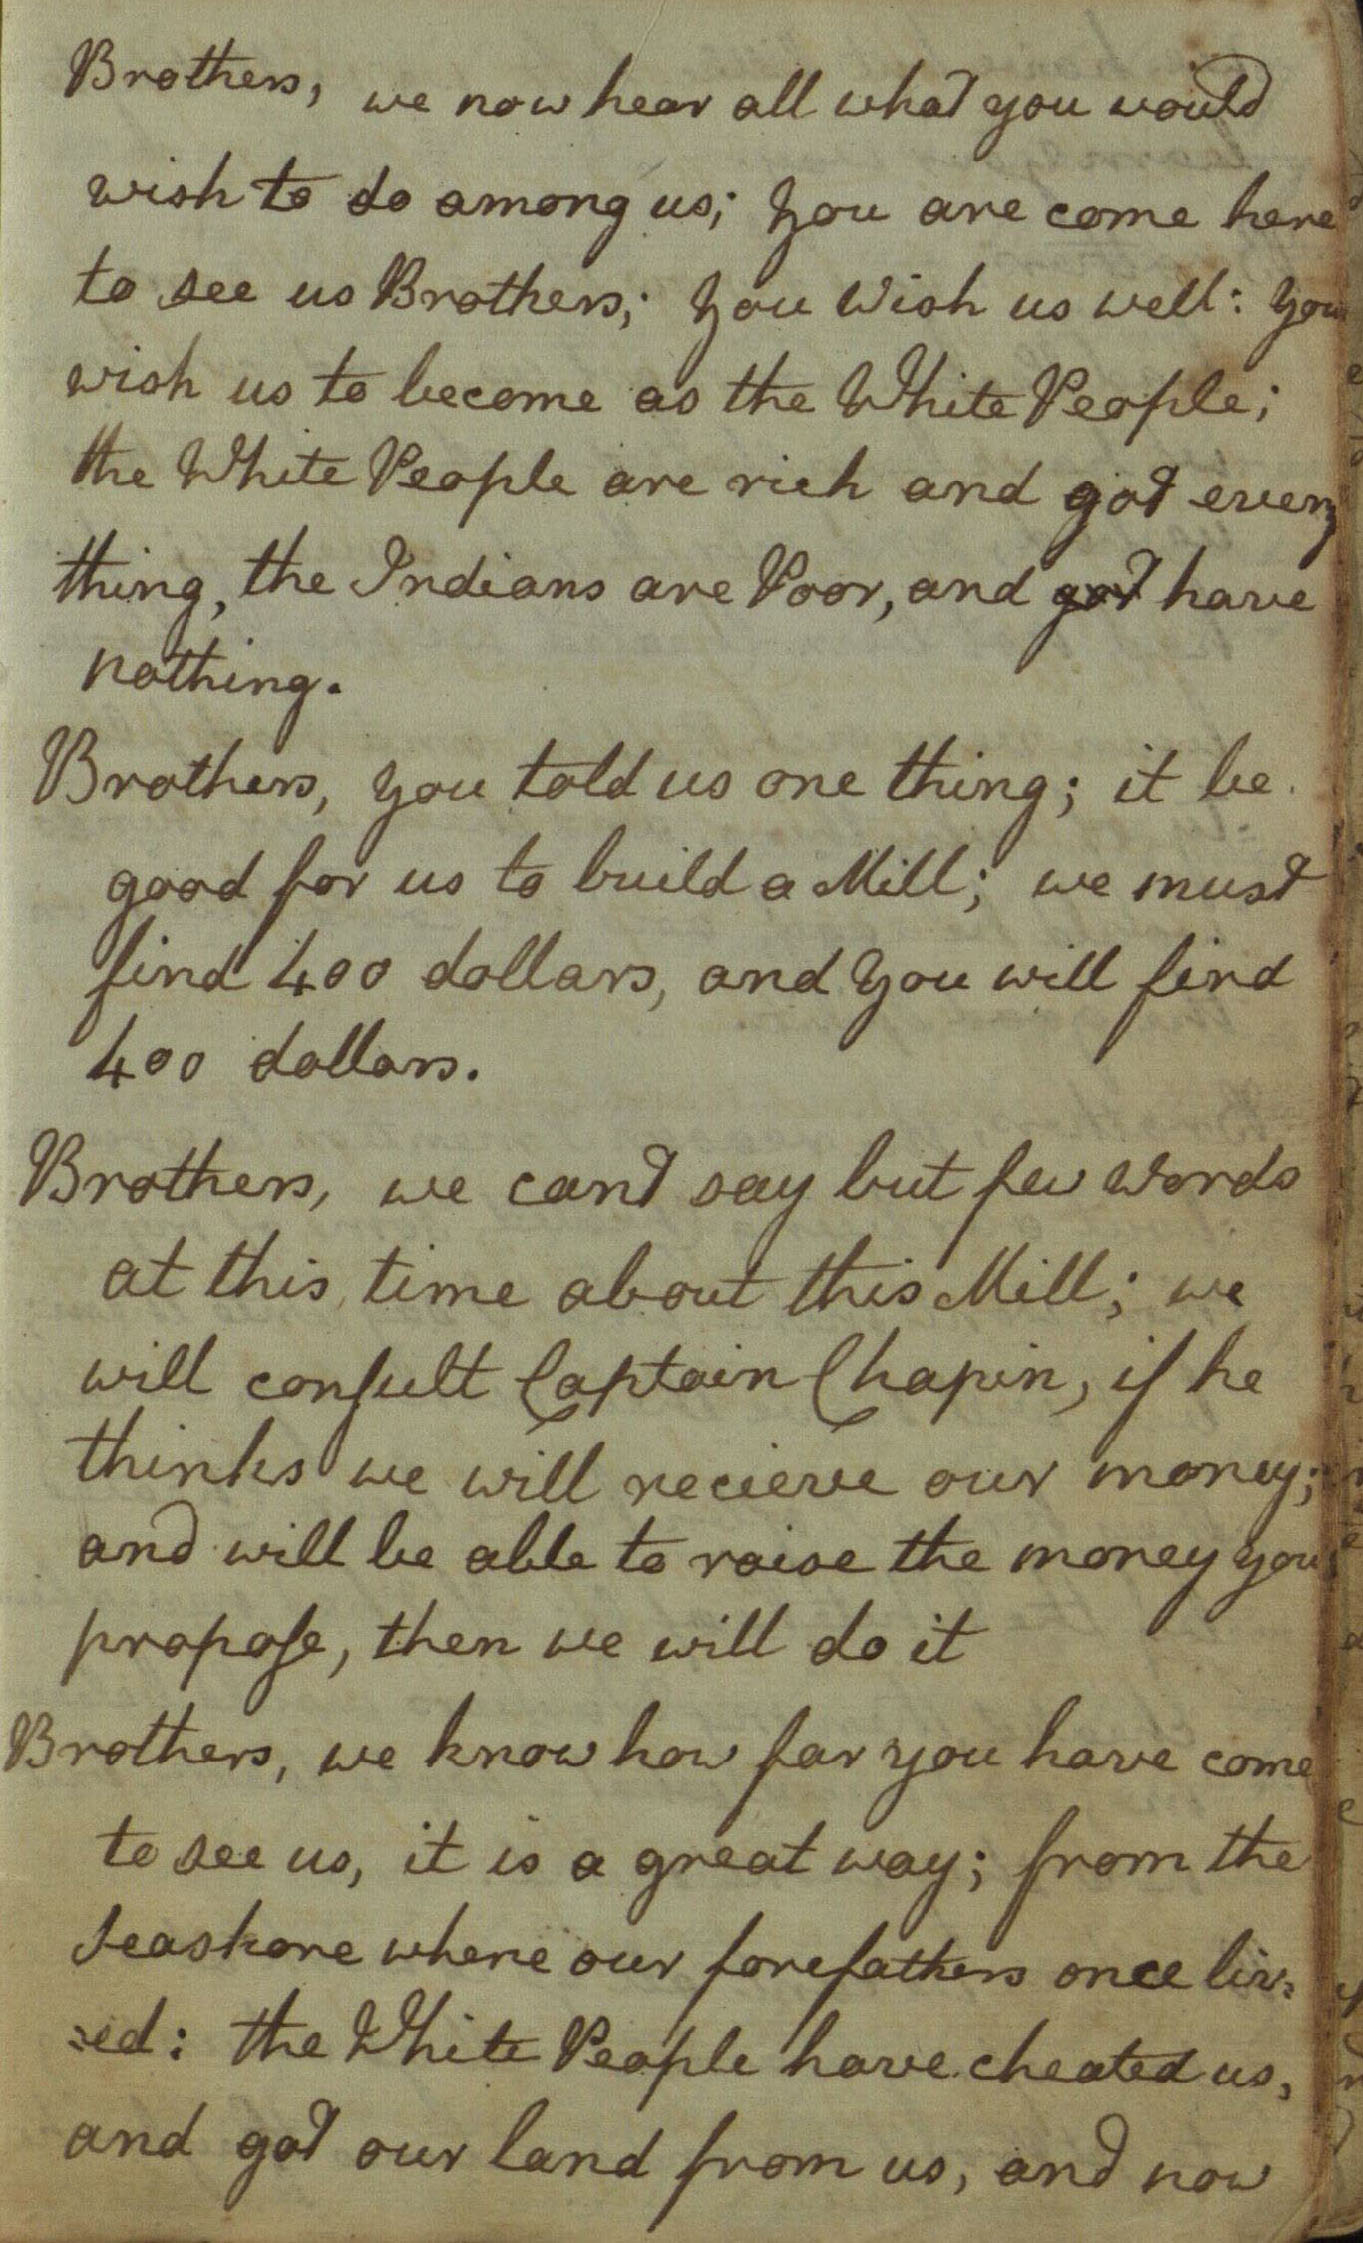 Brothers, we now hear all what you would
wish to do among us; You are come here
to see us Brothers; You Wish us well: You
wish us to become as the White People;
the White People are rich and got every
thing, the Indians are Poor, and got have
nothing.
Brothers, you told us one thing; it be
good for us to build a Mill; we must
find 400 dollars, and You will find
400 dollars.
Brothers, we cant say but few Words
at this time about this Mill; we
will conſult Captain Chapin, if he
thinks we will recieve our money;
and will be able to raise the money you
propoſe, then we will do it
Brothers, we know how far you have come
to see us, it is a great way; from the
Seashore where our forefathers once liv=
=ed: the White People have cheated us,
and got our land from us, and now